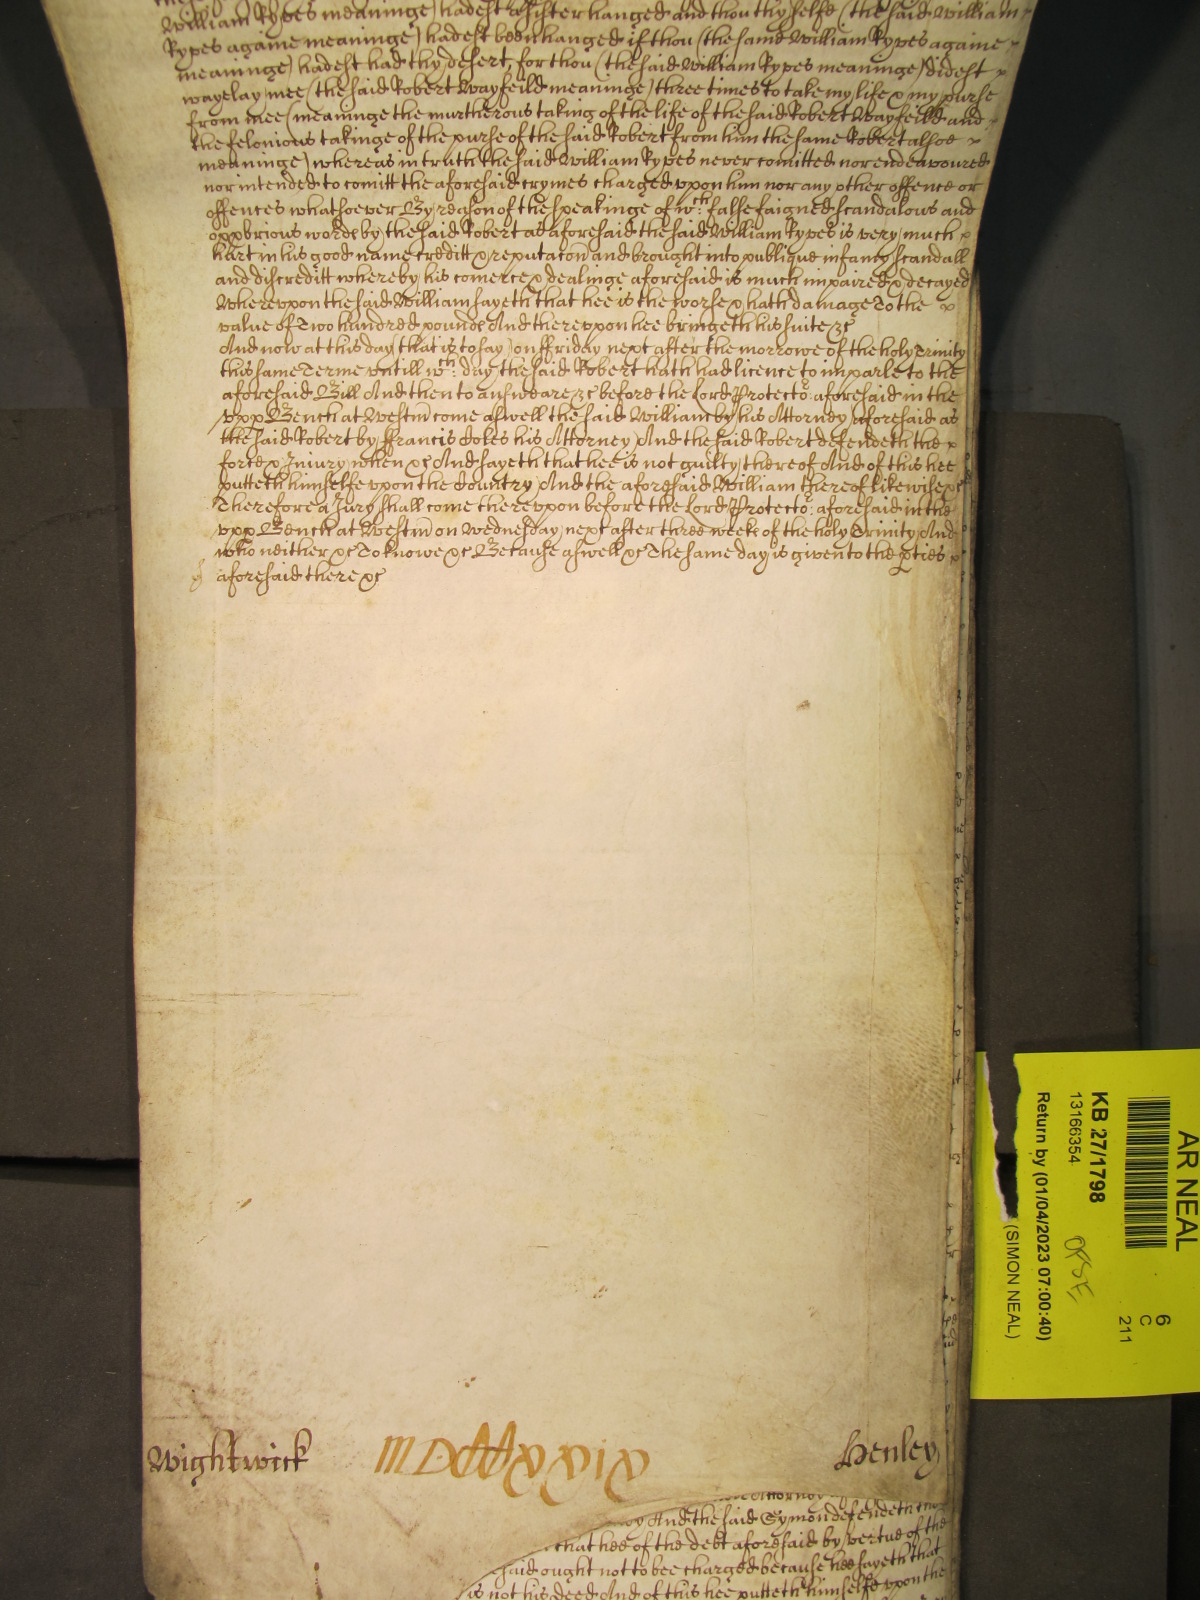 William Rypes meaninge) hadest a sister hanged and thou thy selfe (the said William
Rypes againe meaninge) hadest been hanged if thou (the same William Rypes againe
meaninge) hadest had thy desert, for thou (the said William Rypes meaninge) didest
waylay mee (the said Robert Wayfeild meaninge) three times to take my life & my purse
from mee (meaninge the murtherous taking of the life of the said Robert Wayfeild and
the felonious takinge of the purse of the said Robert from him the same Robert alsoe
meaninge) whereas in truth the said William Rypes never comitted nor endeavoured
nor intended to comitt the aforesaid crymes charged vppon him nor any other offence or
offences whatsoever By reason of the speakinge of wch: false faigned scandalous and
opprobrious wordes by the said Robert as aforesaid the said William Rypes is very much
hurt in his good name creditt & reputacon and brought into publique infamy scandall
and discreditt whereby his comerce & dealinge aforesaid is much impaired & decayed
Wherevpon the said William sayeth that hee is the worse & hath damage To the
value of Two hundred pounds And therevpon hee bringeth his suite &c
And now at this day (that is to say) on ffriday next after the morrowe of the holy Trinity
this same Terme vntill wch: day the said Robert hath had licence to imparle to the
aforesaid Bill And then to answeare &c before the Lord Protector: aforesaid in the
vpp Bench at Westm come aswell the said William by his Attorney aforesaid as
the said Robert by ffrancis Coles his Attorney And the said Robert defendeth the
force & Injury when &c And sayeth that hee is not guilty thereof And of this hee
putteth himselfe vpon the Country And the aforesaid William thereof likewise &c
Therefore a Jury shall come therevpon before the Lord Protector: aforesaid in the
vpp Bench at Westm on Wednesday next after three weeks of the holy Trinity And
who neither &c To knowe &c Because aswell &c The same day is given to the pties
aforesaid there &c
Wightwick
Henley
And the said Symon defendeth the
that hee of the debt aforesaid by vertue of the
said ought not to bee charged because hee sayeth that
is not his deed And of this hee putteth himselfe vpon the
AR NEAL
6
C
211
KB 27/1798
13166354
Return by (01/04/2023 07:00:40)
(SIMON NEAL)